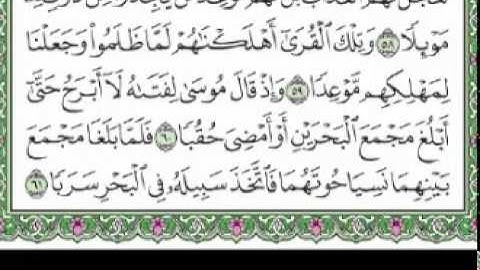 مَوْئِلًا ٥٨ وَتِلْكَ الْقُرَىٰ أَهْلَكْنَاهُمْ لَمَّا ظَلَمُوا وَجَعَلْنَا
لِمَهْلِكِهِم مَّوْعِدًا ٥٩ وَإِذْ قَالَ مُوسَىٰ لِفَتَاهُ لَا أَبْرَحُ حَتَّىٰ
أَبْلُغَ مَجْمَعَ الْبَحْرَيْنِ أَوْ أَمْضِيَ حُقُبًا ٦٠ فَلَمَّا بَلَغَا مَجْمَعَ
بَيْنِهِمَا نَسِيَا حُوتَهُمَا فَاتَّخَذَ سَبِيلَهُ فِي الْبَحْرِ سَرَبًا ٦١